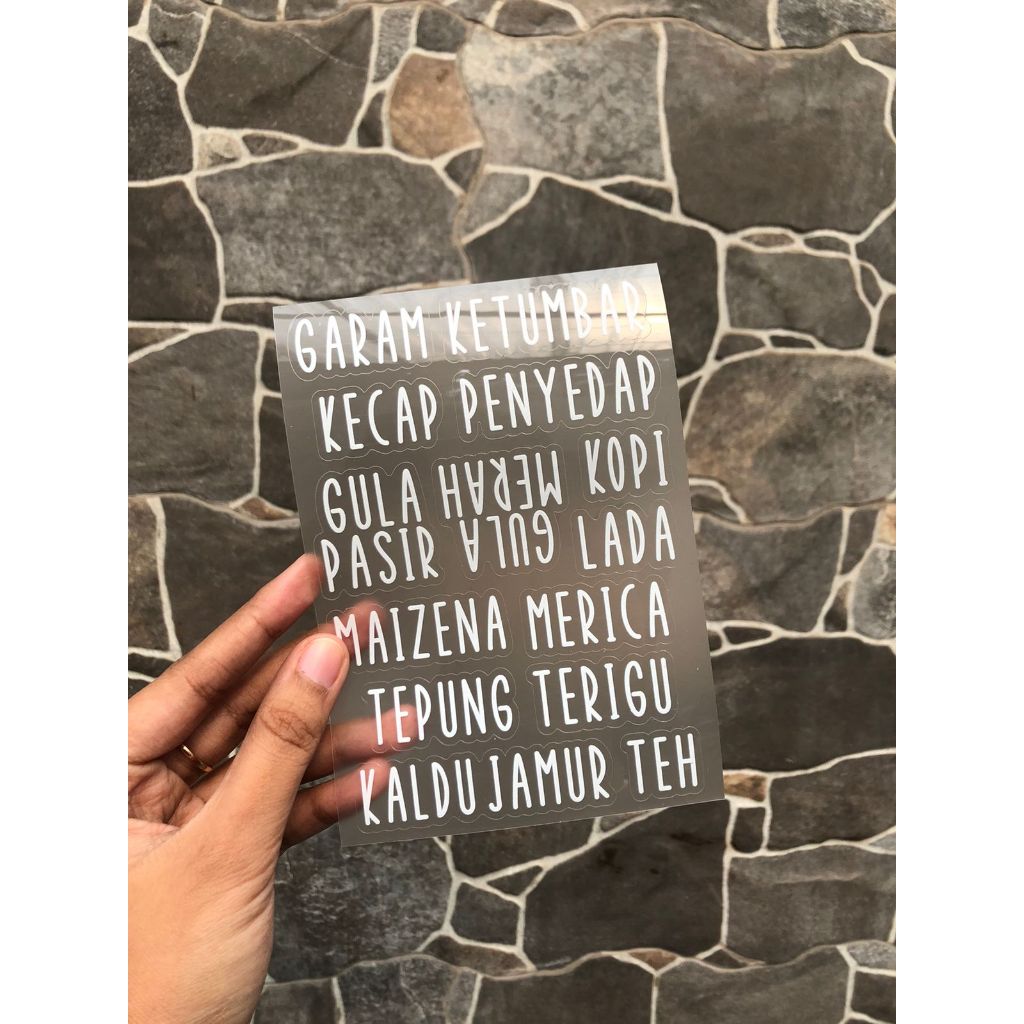 GARAM KETUMBAR
KECAP PENYEDAP
GULA MERAH KOPI
PASIR GULA LADA
MAIZENA MERICA
TEPUNG TERIGU
KALDU JAMUR TEH